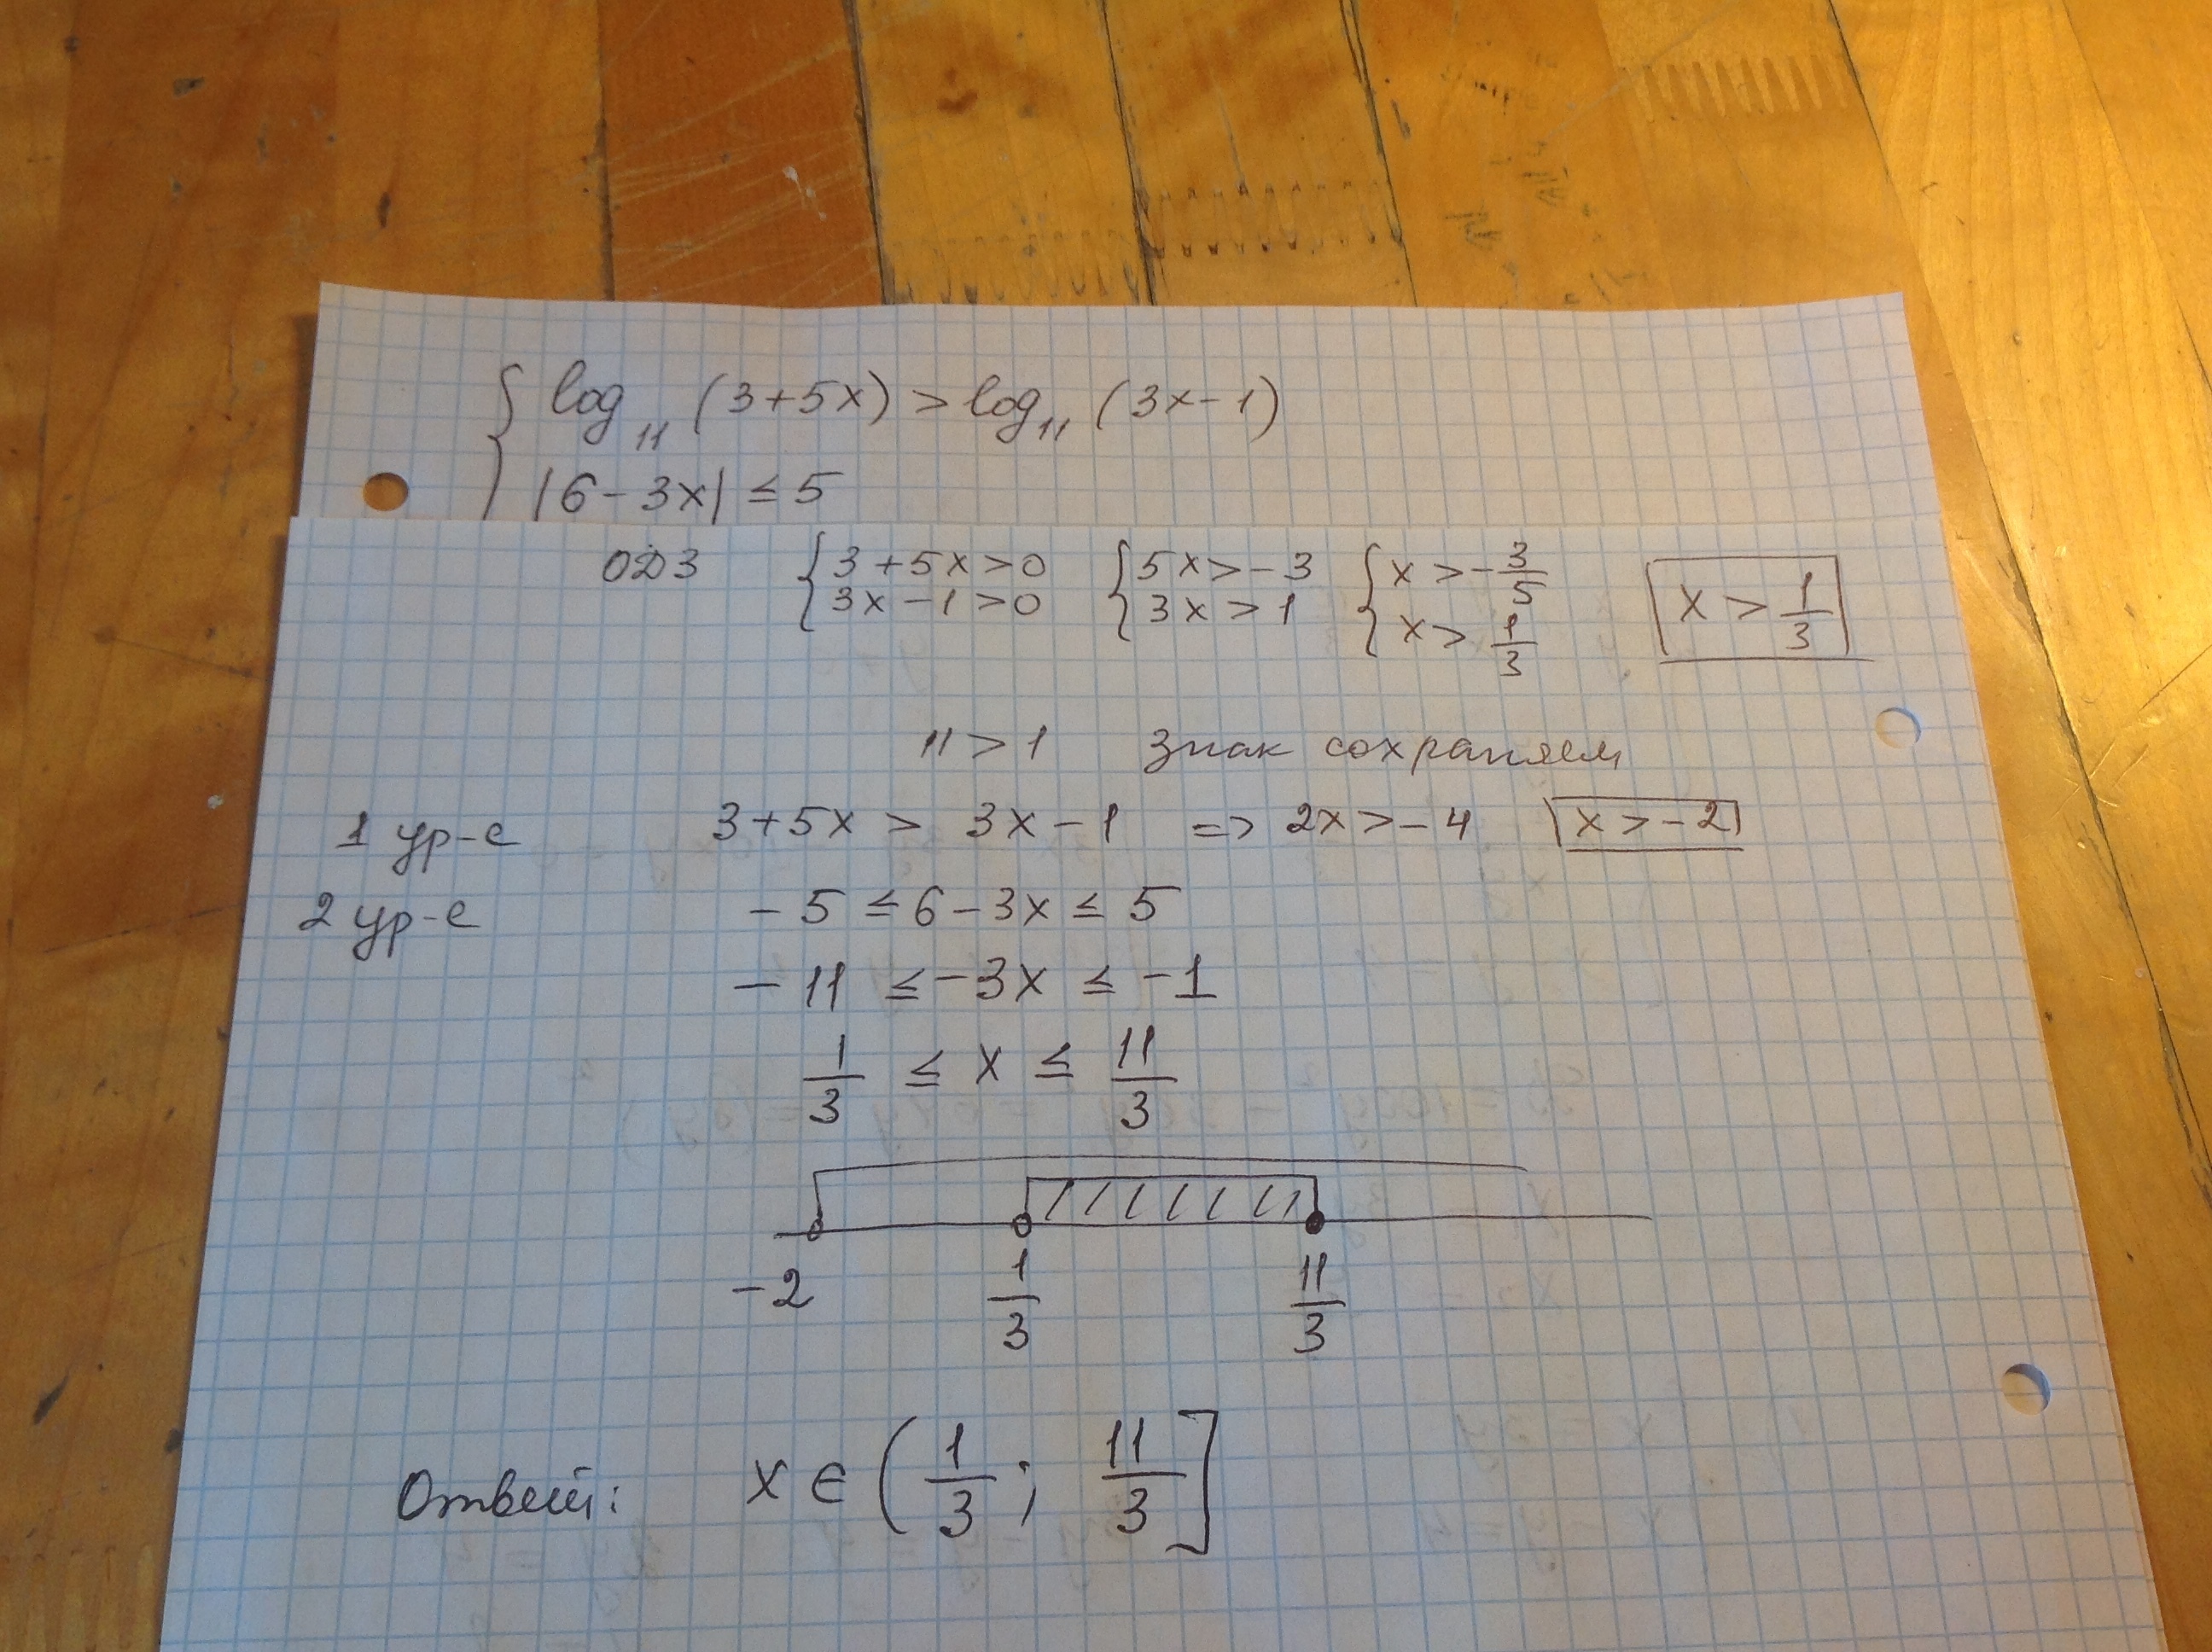 { log₁₁ (3+5x) > log₁₁ (3x-1)
|6-3x| ≤ 5
ОДЗ { 3+5x>0 { 5x>-3 { x>-3/5 x > 1/3
3x-1>0 3x>1 x>1/3
11>1 знак сохраняем
1 ур-е 3+5x > 3x-1 => 2x>-4 x>-2
2 ур-е -5 ≤ 6-3x ≤ 5
-11 ≤ -3x ≤ -1
1/3 ≤ x ≤ 11/3
-2 1/3 11/3
Ответ: x ∈ (1/3; 11/3]